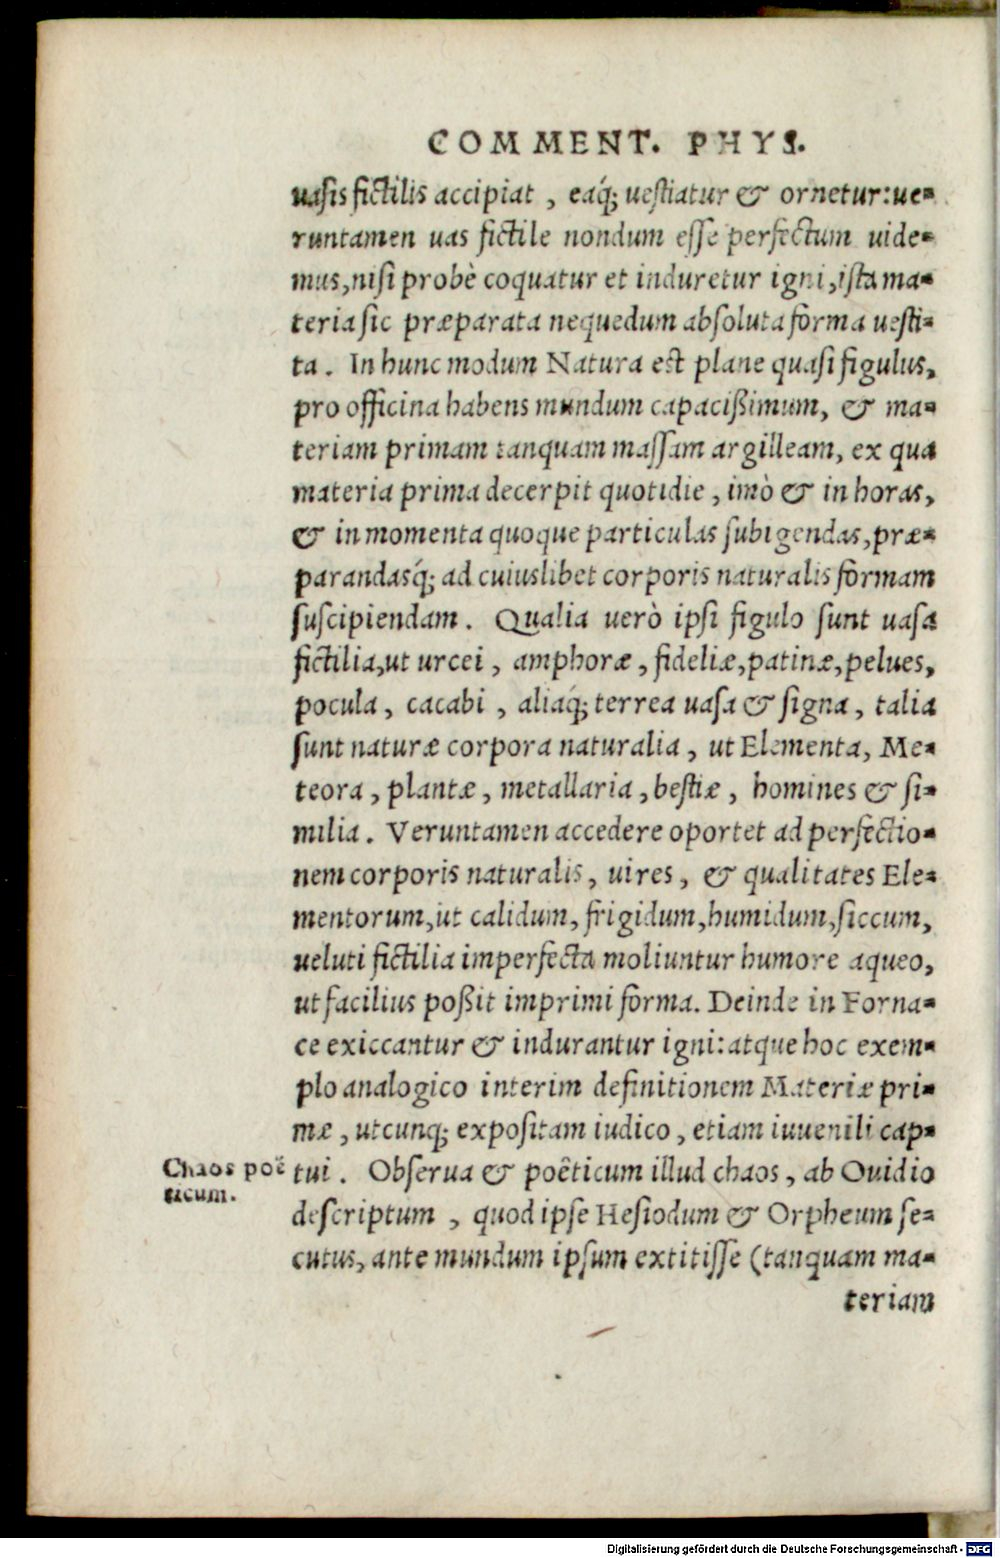 COMMENT. PHYS.
uasis fictilis accipiat, eaq́; uestiatur & ornetur: ue-
runtamen uas fictile nondum esse perfectum uide-
mus, nisi probè coquatur et induretur igni, ista ma-
teria sic præparata nequedum absoluta forma uesti-
ta. In hunc modum Natura est plane quasi figulus,
pro officina habens mundum capacißimum, & ma-
teriam primam tanquam massam argilleam, ex qua
materia prima decerpit quotidie, imò & in horas,
& in momenta quoque particulas subigendas, præ-
parandasq́; ad cuiuslibet corporis naturalis formam
suscipiendam. Qualia verò ipsi figulo sunt uasa
fictilia, ut urcei, amphoræ, fideliæ, patinæ, pelues,
pocula, cacabi, aliaq́; terrea uasa & signa, talia
sunt naturæ corpora naturalia, ut Elementa, Me-
teora, plantæ, metallaria, bestiæ, homines & si-
milia. Veruntamen accedere oportet ad perfectio-
nem corporis naturalis, uires, & qualitates Ele-
mentorum, ut calidum, frigidum, humidum, siccum,
ueluti fictilia imperfecta moliuntur humore aqueo,
ut facilius poßit imprimi forma. Deinde in Forna-
ce exiccantur & indurantur igni: atque hoc exem-
plo analogico interim definitionem Materiæ pri-
mæ, utcunq; expositam iudico, etiam iuuenili cap-
Chaos poë
ticum.
tui. Obserua & poëticum illud chaos, ab Ouidio
descriptum, quod ipse Hesiodum & Orpheum se-
cutus, ante mundum ipsum extitisse (tanquam ma-
teriam
Digitalisierung gefördert durch die Deutsche Forschungsgemeinschaft - DFG